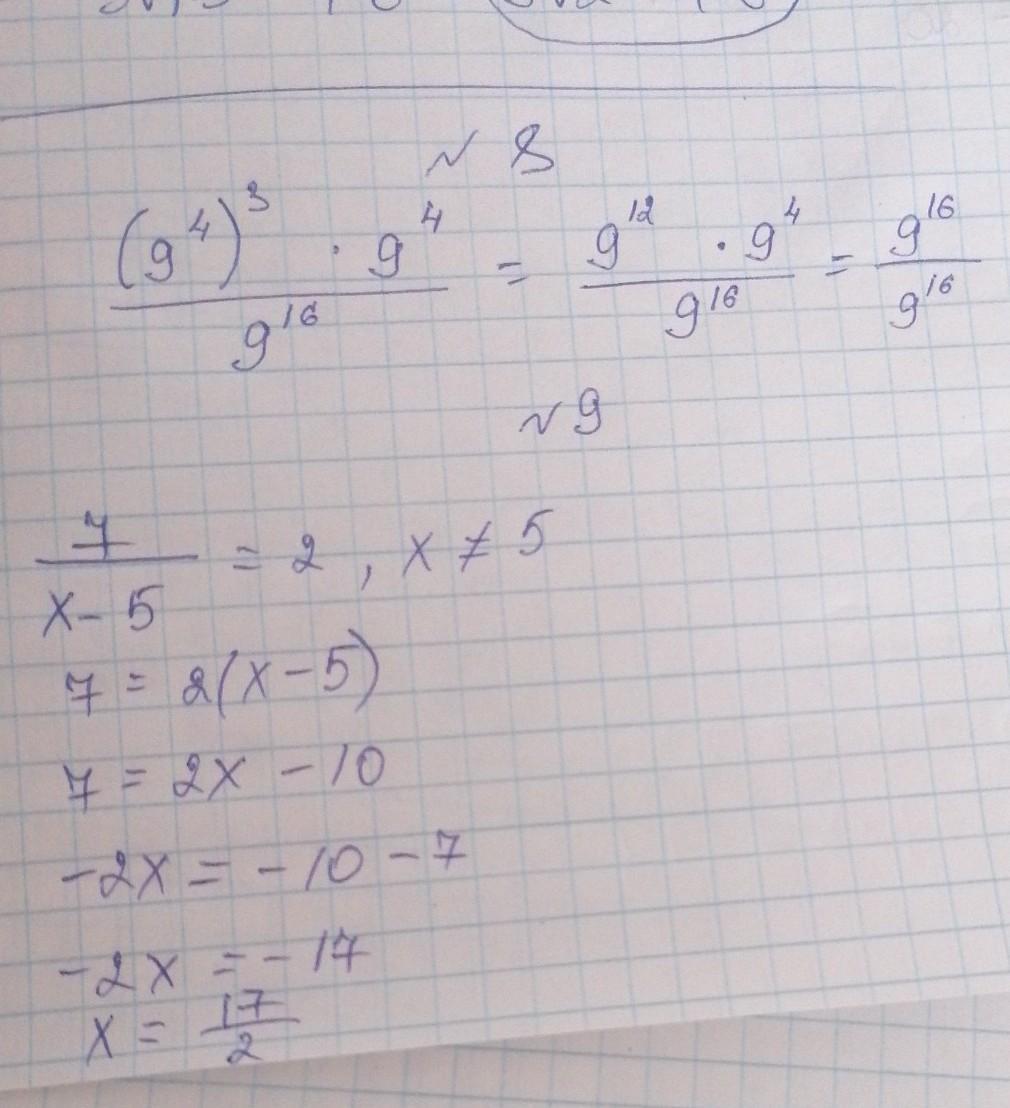 № 8
(9^4)^3 · 9^4 / 9^16 = 9^12 · 9^4 / 9^16 = 9^16 / 9^16
№ 9
7 / x - 5 = 2, x ≠ 5
7 = 2(x - 5)
7 = 2x - 10
-2x = -10 - 7
-2x = -17
x = 17 / 2